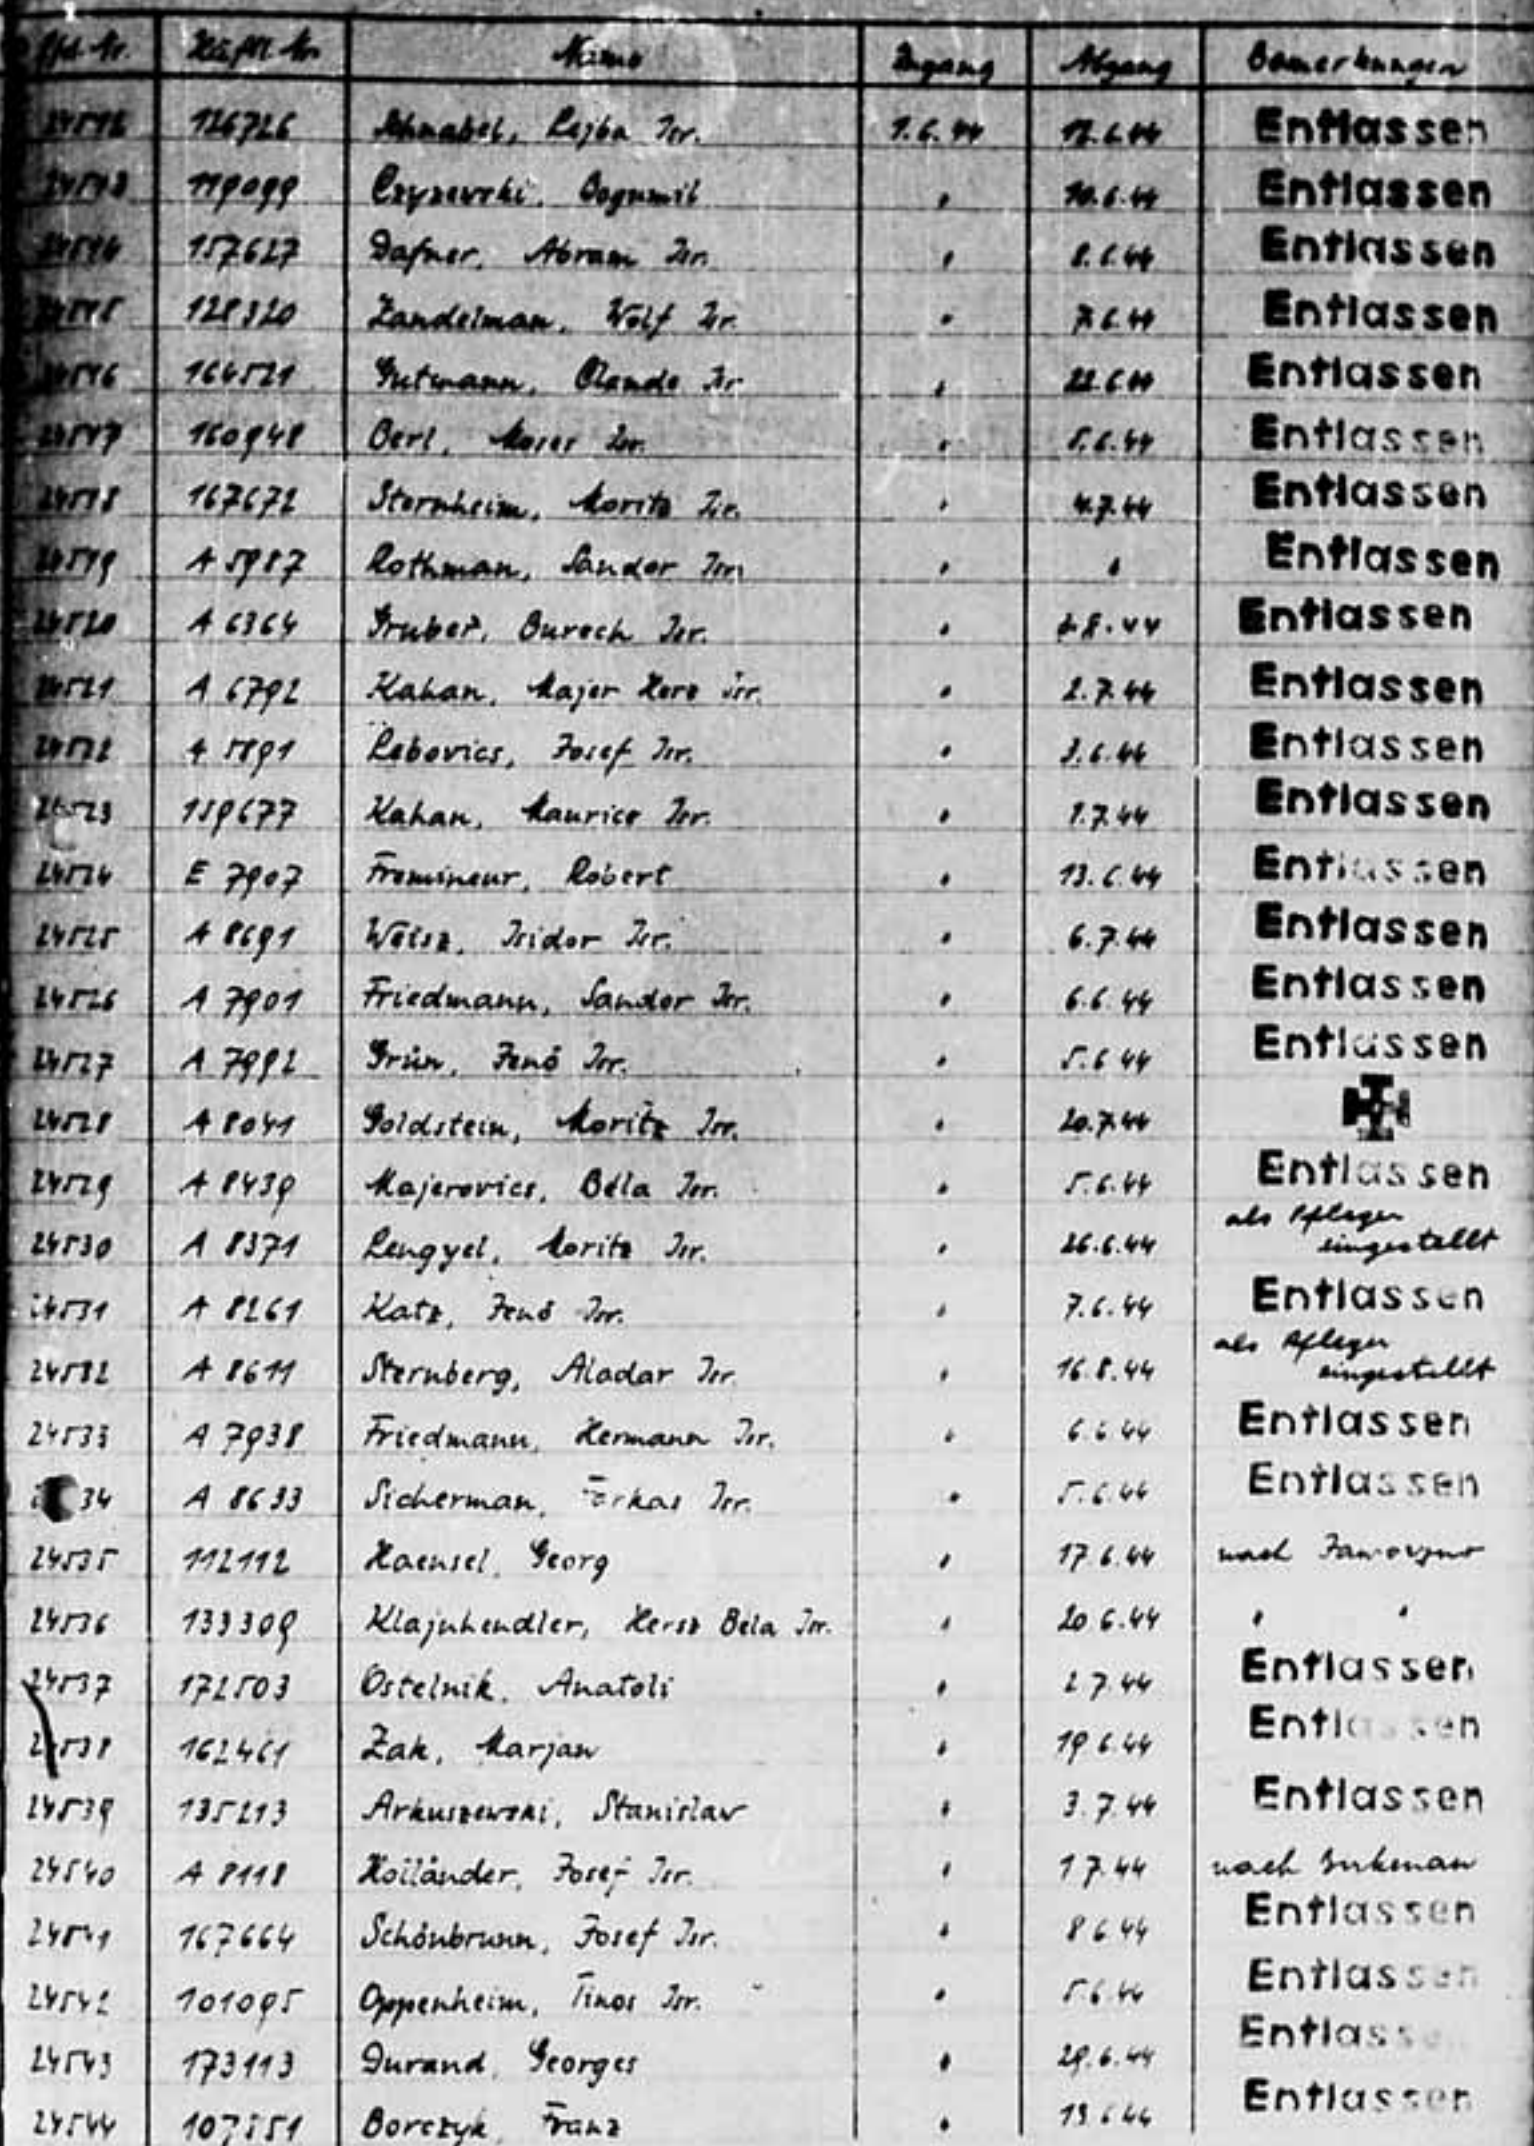 Lfd. Nr. Häftl. Nr. Name Zugang Abgang Bemerkungen
126726 Schnabel, Lejba Isr. 1.6.44 Entlassen
119099 Czyzewski, Bogumil " 10.6.44 Entlassen
157627 Dafner, Abram Isr. " 8.6.44 Entlassen
128320 Zandelman, Wolf Isr. " 7.6.44 Entlassen
164521 Gutmann, Isr. " 22.6.44 Entlassen
24517 160948 Berl, Moses Isr. " 5.6.44 Entlassen
24518 167672 Sternheim, Moritz Isr. " 4.7.44 Entlassen
24519 A 5987 Rothman, Sandor Isr. " " Entlassen
24520 A 6364 Gruber, Burech Isr. " Entlassen
24521 A 6792 Kahan, Majer Herz Isr. " 2.7.44 Entlassen
24522 A 5891 Lebovics, Josef Isr. " 3.6.44 Entlassen
24523 159677 Kahan, Maurice Isr. " 1.7.44 Entlassen
24524 E 7907 Fromineur, Robert " 13.6.44 Entlassen
24525 A 8691 Weisz, Isidor Isr. " 6.7.44 Entlassen
24526 A 7901 Friedmann, Sandor Isr. " 6.6.44 Entlassen
24527 A 7992 Grün, Jenö Isr. " 5.6.44 Entlassen
24528 A 8041 Goldstein, Moritz Isr. " 20.7.44
24529 A 8439 Majerovics, Béla Isr. " 5.6.44 Entlassen
24530 A 8371 Lengyel, Moritz Isr. " 26.6.44 als Pfleger
eingestellt
24531 A 8261 Katz, Jenö Isr. " 7.6.44 Entlassen
24532 A 8611 Sternberg, Aladar Isr. " 16.8.44 als Pfleger
eingestellt
24533 A 7938 Friedmann, Hermann Isr. " 6.6.44 Entlassen
34 A 8633 Sicherman, Farkas Isr. " 5.6.44 Entlassen
24535 112112 Haensel, Georg " 17.6.44 nach Jaworzno
24536 133309 Klajnhendler, Hersz Bela Isr. " 20.6.44 " "
24537 172503 Ostelnik, Anatoli " 2.7.44 Entlassen
24538 162461 Zak, Marjan " 19.6.44 Entlassen
24539 135213 Arkuszewski, Stanislaw " 3.7.44 Entlassen
24540 A 8118 Holländer, Josef Isr. " 1.7.44 nach Birkenau
24541 167664 Schönbrunn, Josef Isr. " 8.6.44 Entlassen
24542 101095 Oppenheim, Tinos Isr. " 5.6.44 Entlassen
24543 173113 Durand, Georges " 29.6.44 Entlassen
24544 107551 Borczyk, Franz " 13.6.44 Entlassen